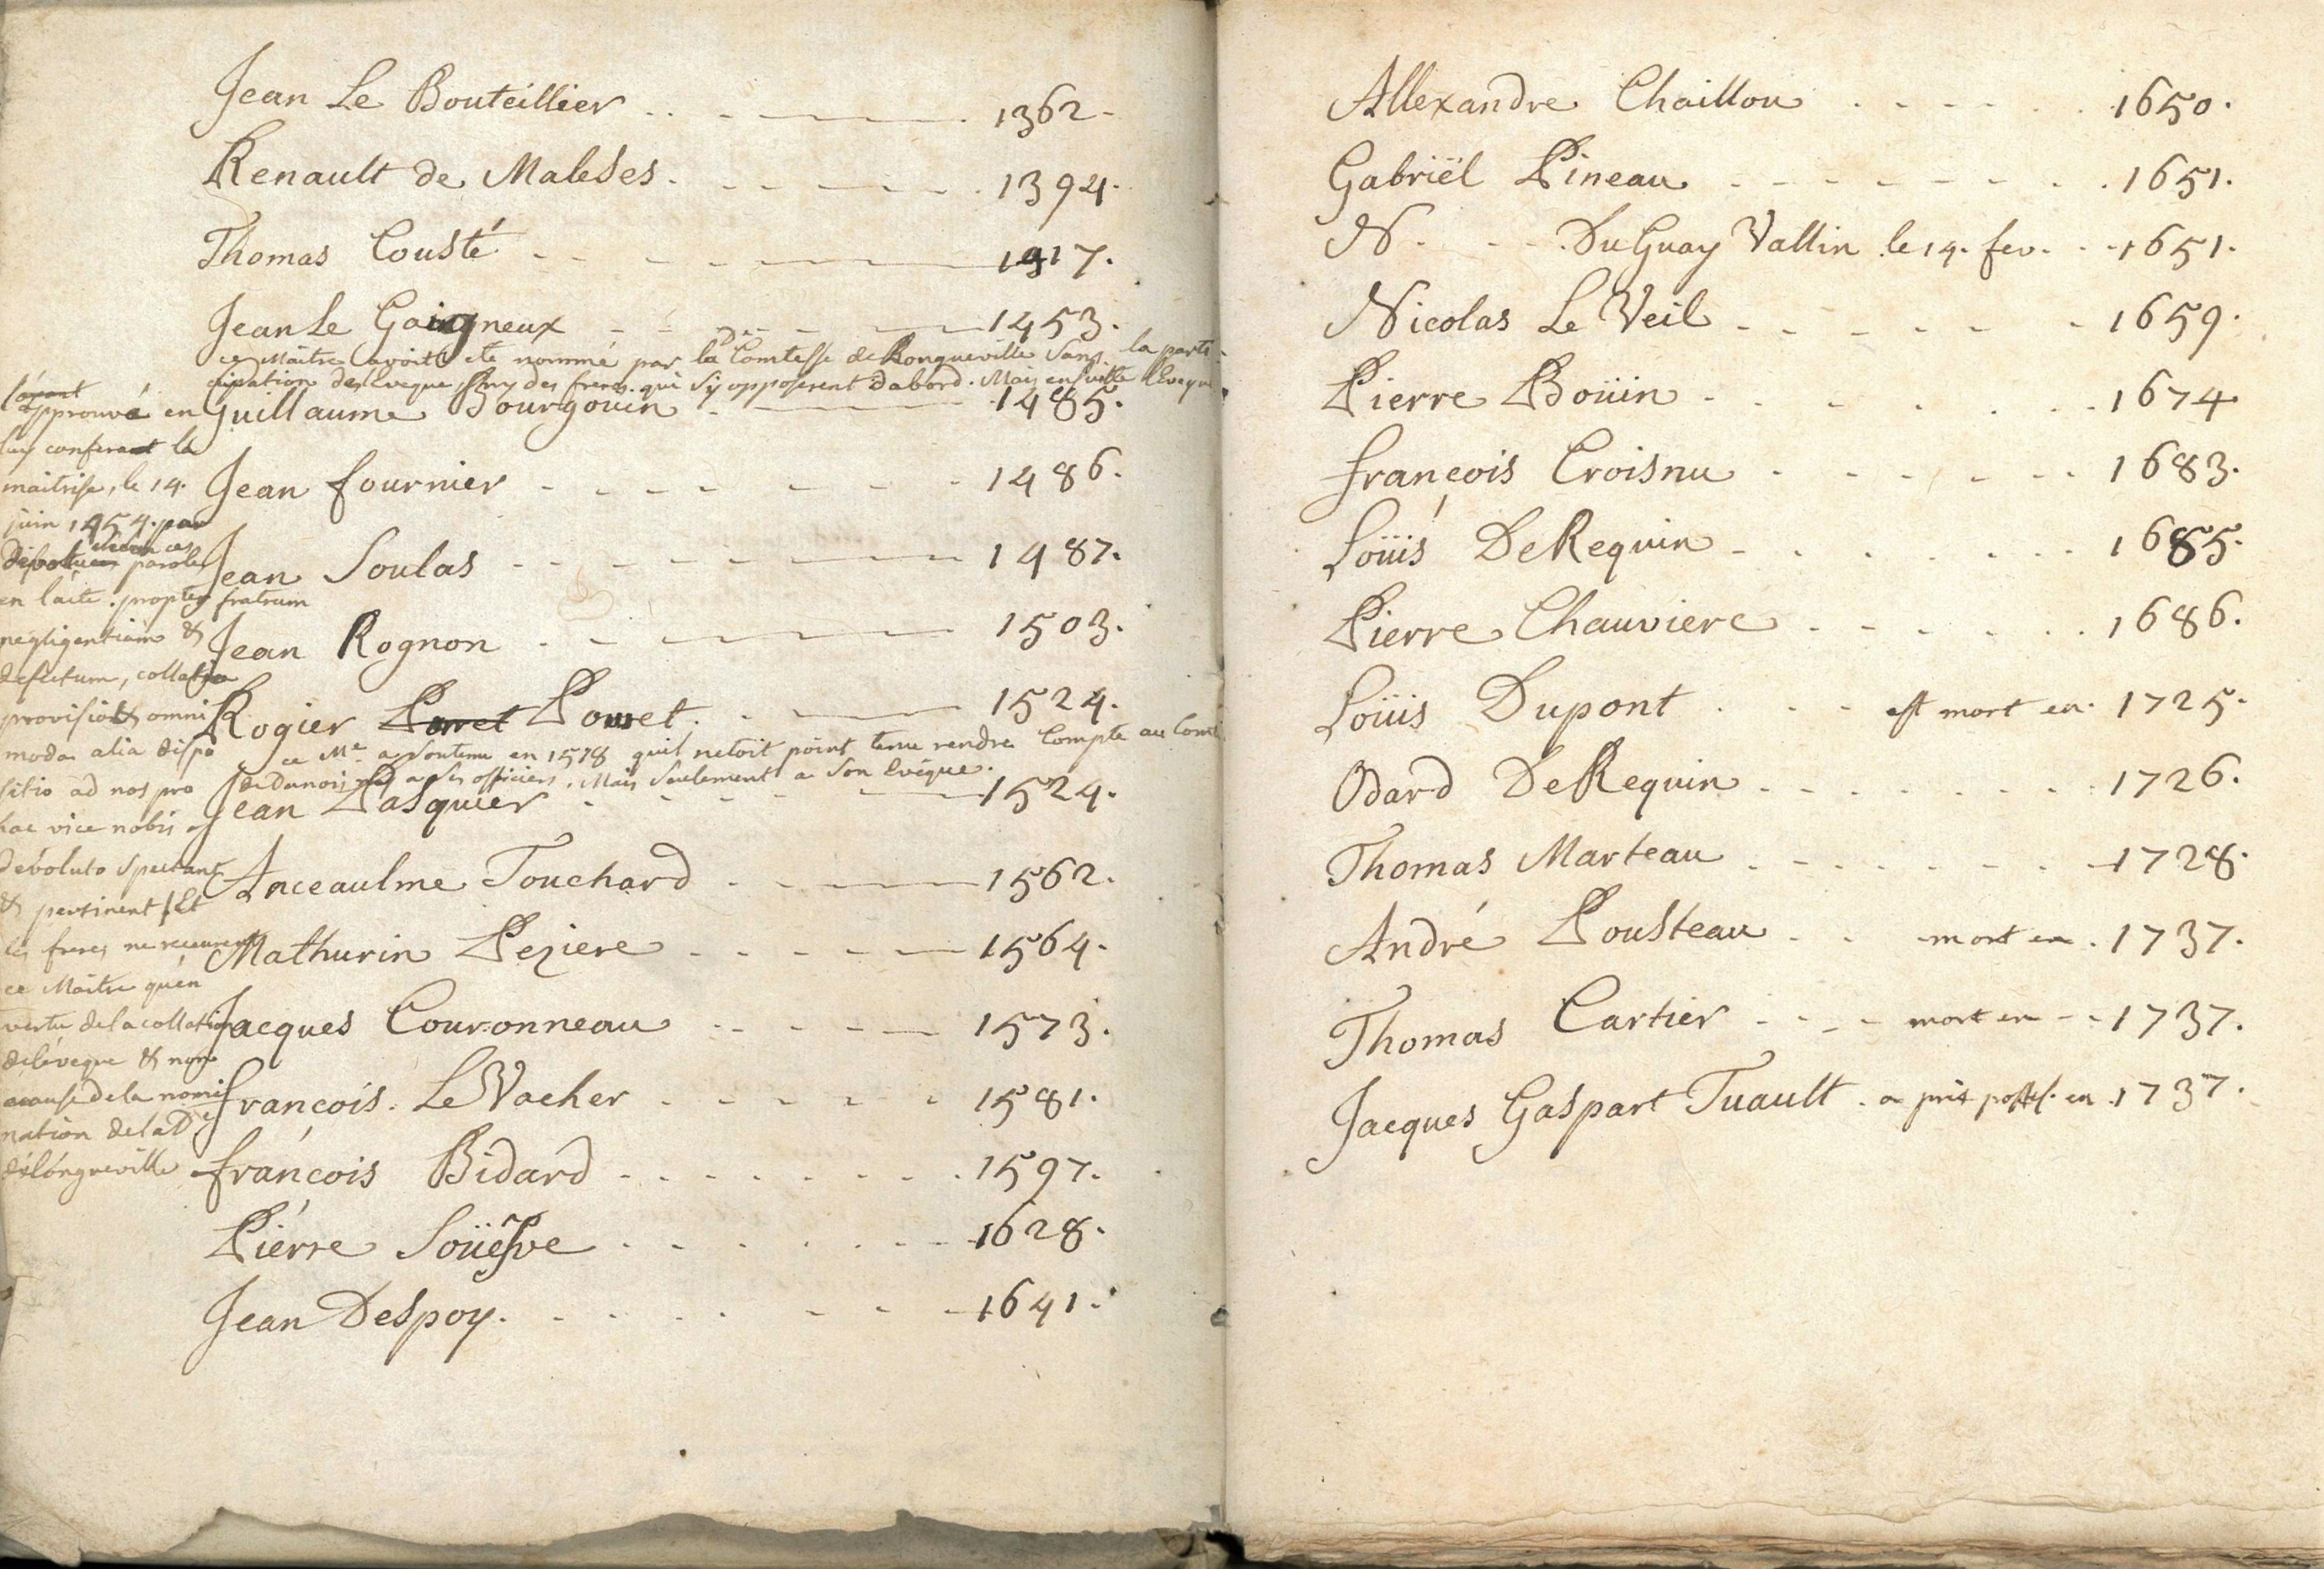 Jean Le Bouteillier . . - - - - . 1362.
Renault de Maleses. - - - - - . 1394.
Thomas Cousté - - - - - - 1417.
Jean Le Gaingneux - - - - - 1453.
ce Maitre avoit ete nommé par la Comtesse de Longueville Sans la parti-
cipation de l'Eveque, ny des freres. qui s'y opposerent dabord. Mais ensuitte l'Eveque
Guillaume Bourgouin . - - - 1485.
Jean fournier - - - - - - - 1486.
Jean Soulas - - - - - - - 1487.
Jean Rognon . - - - - - 1503.
Rogier Pouret . - - - 1524.
ce Me a soutenu en 1578 quil netoit point tenu rendre Compte au Comte
de dunois a ses officiers, Mais seulement a son Evéque.
Jean Pasquier - - - - - 1524.
Anceaulme Touchard . - - - 1562.
Mathurin Peziere - - - - - 1564.
Jacques Couronneau - - - - 1573.
françois. Le Vacher - - - - - 1581.
françois Bidard - - - - - - . 1597.
Piérre Soüesve . - - - - - 1628.
Jean Despoy. - - - - - - 1641.
l'ayant
approuvé en
luy conferant la
maitrise, le 14.
juin 1454. par
devolu selon ces paroles
en l'acte. propter fratrum
negligentiam &
defectum, collatio
provisio & omni
moda alia dispo
sitio ad nos pro
hac vice nobis
devoluto spectant
& pertinent / Et
les freres ne receurent
ce Maitre qu'en
vertu de la collation
de l'éveque & non
a cause de la nomi
nation de la De
de longueville
Allexandre Chaillou . - - - - . 1650.
Gabriël Pineau - - - - - - - . . 1651.
N. - - . Du Guay Vallin le 14. fev. . - 1651.
Nicolas Le Veil - - - - - - 1659.
Pierre Boüin - - - . . . . 1674
françois Croisnu - - - - - - 1683.
Loüis DeRequin - . . . . . . 1685.
Pierre Chauviere . - - . - . . 1686.
Loüis Dupont . - - est mort en. 1725.
Odard DeRequin - . . . . . . . 1726.
Thomas Marteau . - - . . . . - 1728.
André Pousteau . . - mort en . 1737.
Thomas Cartier - - - - mort en - - 1737.
Jacques Gaspart Tuault . a pris posses. en . 1737.